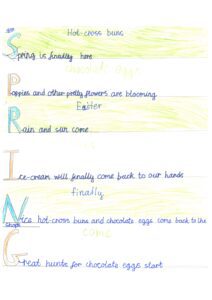 Hot-cross buns
Spring is finally here
chocolate egg
Poppies and other pretty flowers are blooming
Easter
Rain and sun come
Ice-cream will finally come back to our hands
finally
Nice hot-cross buns and chocolate eggs come back to the
shops
come
Great hunts for chocolate eggs start